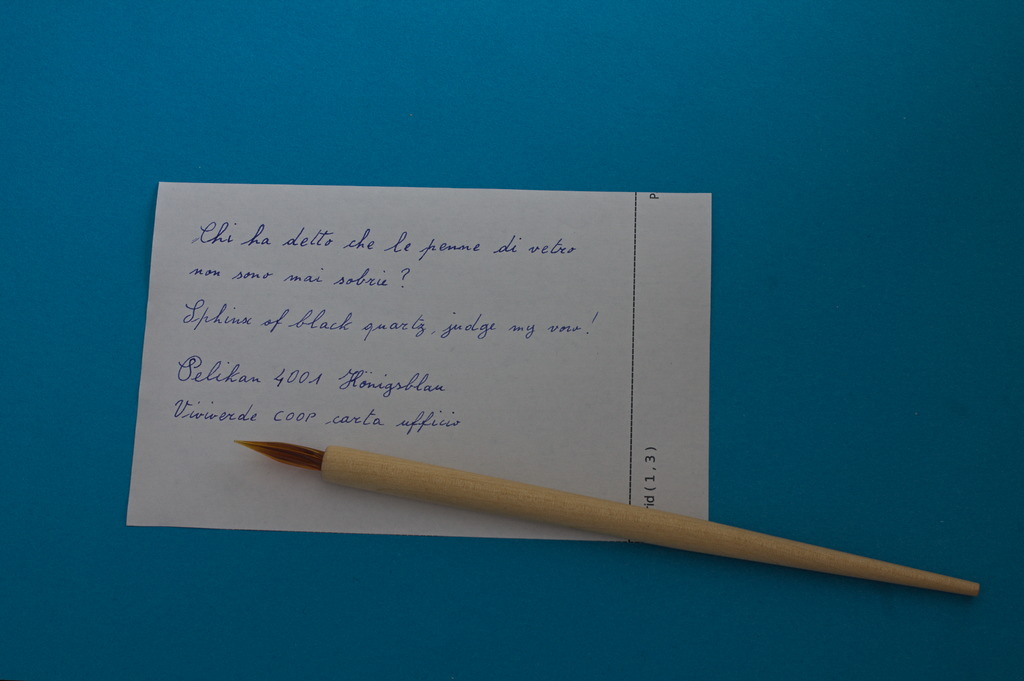 Chi ha detto che le penne di vetro
non sono mai sobrie?
Sphinx of black quartz, judge my vow!
Pelikan 4001 Königsblau
Viviverde COOP carta ufficio
P
rid(1,3)